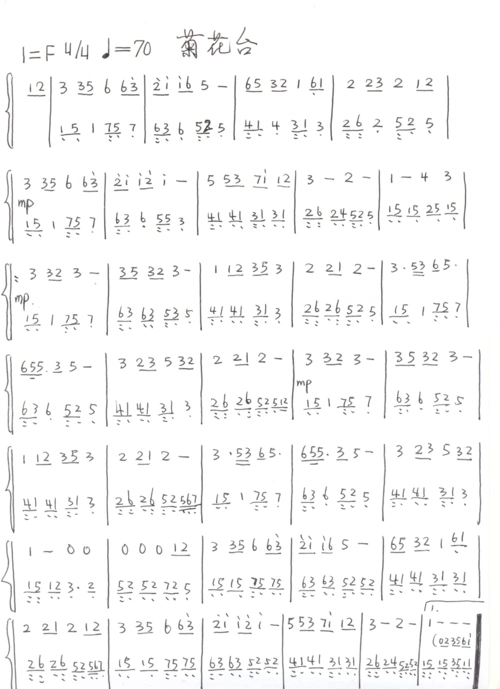 1=F 4/4 ♩=70 菊花台
12 | 3 35 6 63 | 21 16 5 - | 65 32 1 61 | 2 23 2 12
15 1 75 7 | 63 6 52 5 | 41 4 31 3 | 26 2 52 5
3 35 6 63 | 21 12 1 - | 5 53 71 12 | 3 - 2 - | 1 - 4 3
mp
15 1 75 7 | 63 6 55 3 | 41 41 31 31 | 26 24 52 5 | 15 15 25 15
: 3 32 3 - | 35 32 3 - | 1 12 35 3 | 2 21 2 - | 3 · 53 65 ·
mp.
15 1 75 7 | 63 63 53 5 | 41 41 31 3 | 26 26 52 5 | 15 1 75 7
655 . 3 5 - | 3 23 5 32 | 2 21 2 - | 3 32 3 - | 35 32 3 -
mp
63 6 52 5 | 41 41 31 3 | 26 26 52 512 | 15 1 75 7 | 63 6 52 5
1 12 35 3 | 2 21 2 - | 3 · 53 65 · | 655 . 3 5 - | 3 23 5 32
41 41 31 3 | 26 26 52 567 | 15 1 75 7 | 63 6 52 5 | 41 41 31 3
1 - 0 0 | 0 0 0 12 | 3 35 6 63 | 21 16 5 - | 65 32 1 61
15 12 3 · 2 | 52 52 72 5 | 15 15 75 75 | 63 63 52 52 | 41 41 31 31
1.
2 21 2 12 | 3 35 6 63 | 21 12 1 - | 553 71 12 | 3 - 2 - | 1 - - -
(023561
26 26 52 567 | 15 15 75 75 | 63 63 52 52 | 41 41 31 31 | 26 24 52 52 | 15 15 35 11